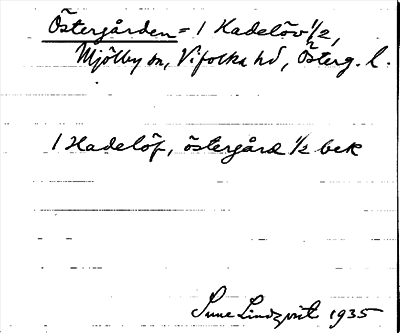 Östergården = 1 Hadelöv 1/2,
Mjölby sn, Vifolka hd, Österg. l.
1 Hadelöf, östergård 1/2 bek
Sune Lindqvist 1935